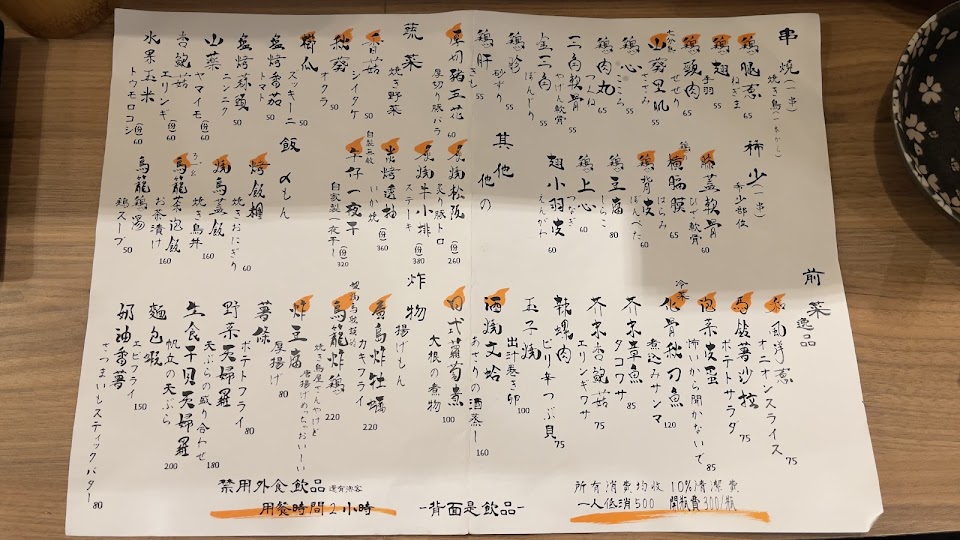 串燒(一串)
焼き鳥(一本から)
雞腿蔥
ねぎま
65
雞翅
手羽
55
雞頸肉
せせり
65
山葵里肌
ささみ
55
雞心
こころ
55
雞肉丸
つくね
65
三角軟骨
やげん軟骨
55
三角
ぼんじり
55
雞胗
砂ずり
55
雞肝
きも
55
厚切豬五花
厚切り豚バラ
60
蔬菜
焼き野菜
香菇
シイタケ
50
秋葵
オクラ
50
櫛瓜
ズッキーニ
50
塩烤番茄
トマト
50
塩烤蒜頭
ニンニク
50
山藥
ヤマイモ
60
杏鮑菇
エリンギ
60
水果玉米
トウモロコシ
(份)60
稀少(一串)
希少部位
膝蓋軟骨
ひざ軟骨
60
橫膈膜
はらみ
65
雞背皮
ぼんぺた
60
雞豆腐
しらこ
80
雞上心
つなぎ
60
翅小羽皮
えんがわ
60
其他
他の
炙燒松阪
炙り豚トロ
(份)260
炙燒牛小排
ステーキ
(份)380
炭烤透抽
いか焼
(份)360
自製無敵
午仔一夜干
自家製一夜干し
(份)320
飯
〆もん
烤飯糰
焼きおにぎり
60
燒鳥蓋飯
焼き鳥丼
160
烏龍茶泡飯
お茶漬け
160
烏龍雞湯
鶏スープ
50
前菜
逸品
和風洋蔥
オニオンスライス
75
馬鈴薯沙拉
ポテトサラダ
75
冷菜
泡菜皮蛋
怖いから聞かないで
85
化骨秋刀魚
煮込みサンマ
120
芥末章魚
タコワサ
85
芥末杏鮑菇
エリンギワサ
75
辣螺肉
ピリ辛つぶ貝
75
玉子燒
出汁巻き卵
100
酒燒文蛤
あさりの酒蒸し
160
日式蘿蔔煮
大根の煮物
100
炸物
揚げもん
廣島炸牡蠣
カキフライ
220
烏龍炸雞
焼き鳥屋さんやけど
唐揚げめっちゃおいしい
220
炸豆腐
厚揚げ
80
薯條
ポテトフライ
80
野菜天婦羅
天ぷらの盛り合わせ
180
生食干貝天婦羅
帆立の天ぷら
200
麵包蝦
エビフライ
150
奶油番薯
さつまいもスティックバター
80
禁用外食飲品 還有沛客
用餐時間2小時
-背面是飲品-
所有消費均收 10%清潔費
一人低消500 開瓶費300/瓶